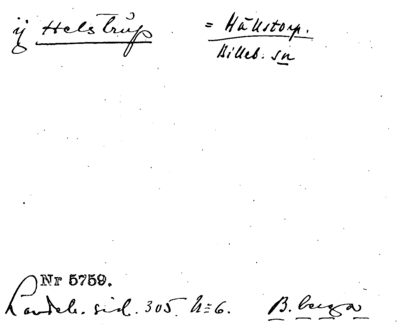 ÿ Helstrup = Hällstorp.
Billeb. sn
Nr 5759.
Landeb. sid. 305. N=6. B. berga